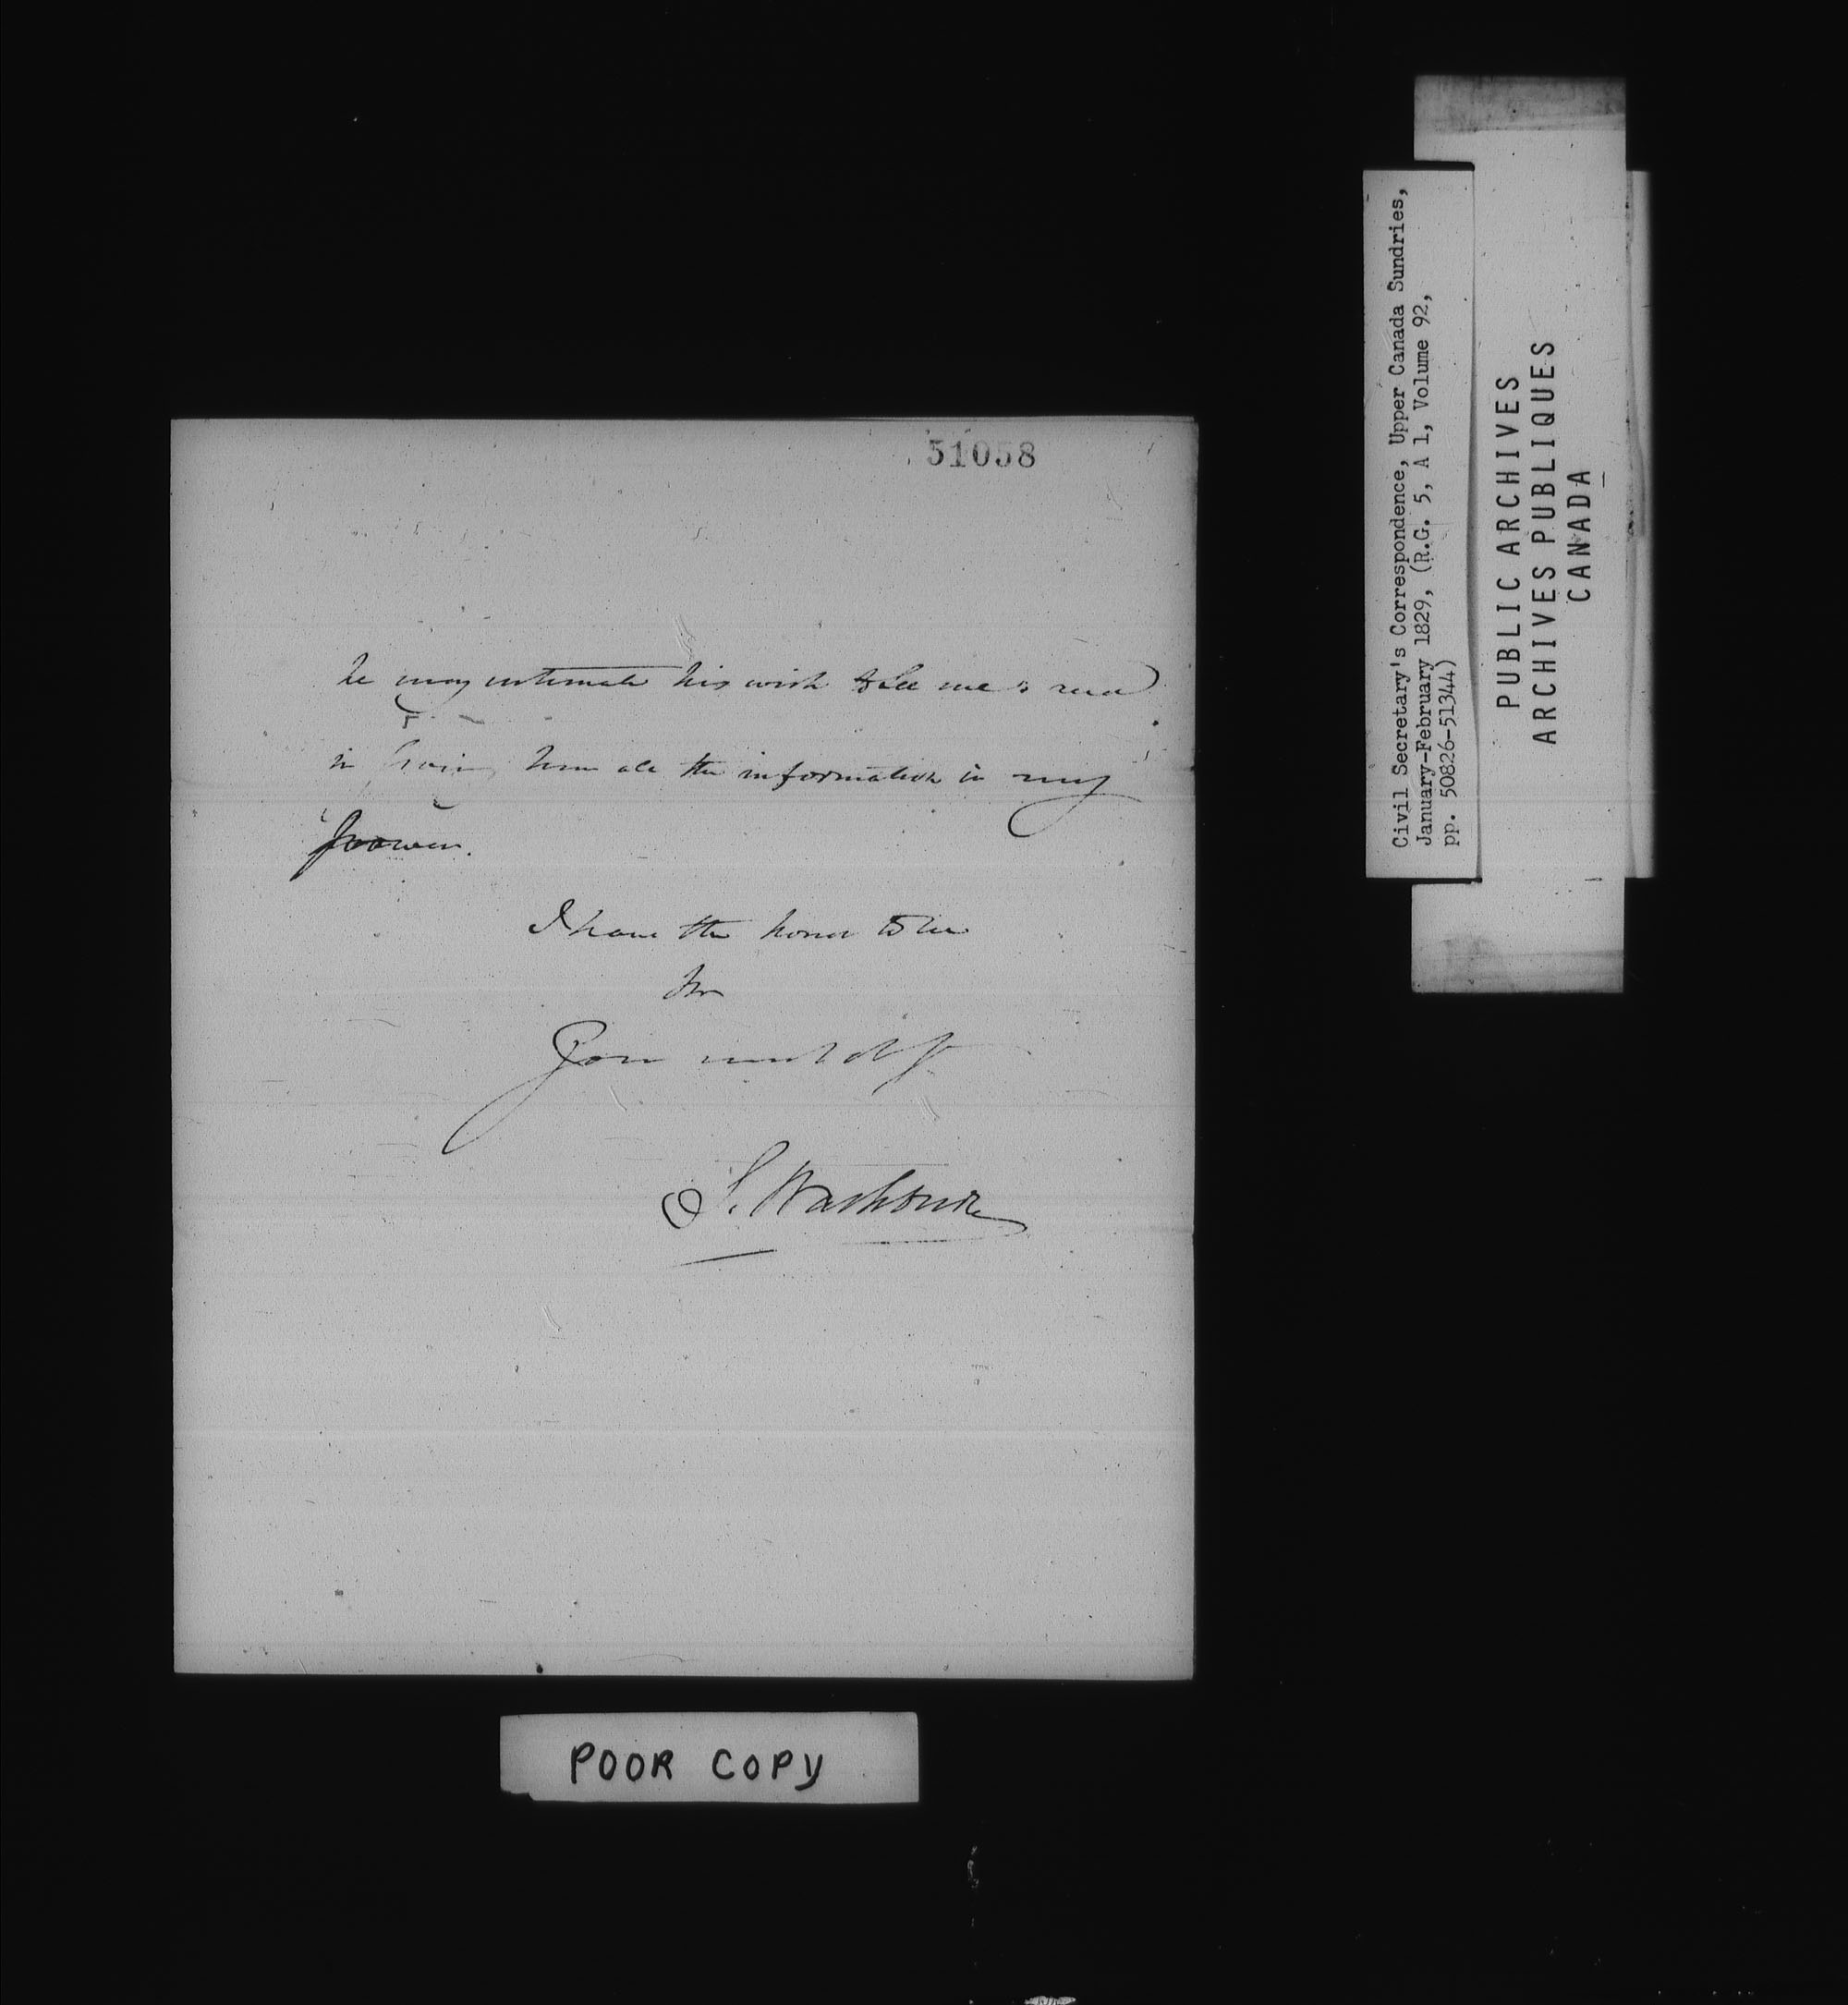 51058
he may intimate his wish to see me & read
in giving him all the information in my
power.
I have the honor to be
Sir
Your most obt
S. Washburn
POOR COPY
Civil Secretary's Correspondence, Upper Canada Sundries,
January-February 1829, (R.G. 5, A 1, Volume 92,
pp. 50826-51344)
PUBLIC ARCHIVES
ARCHIVES PUBLIQUES
CANADA